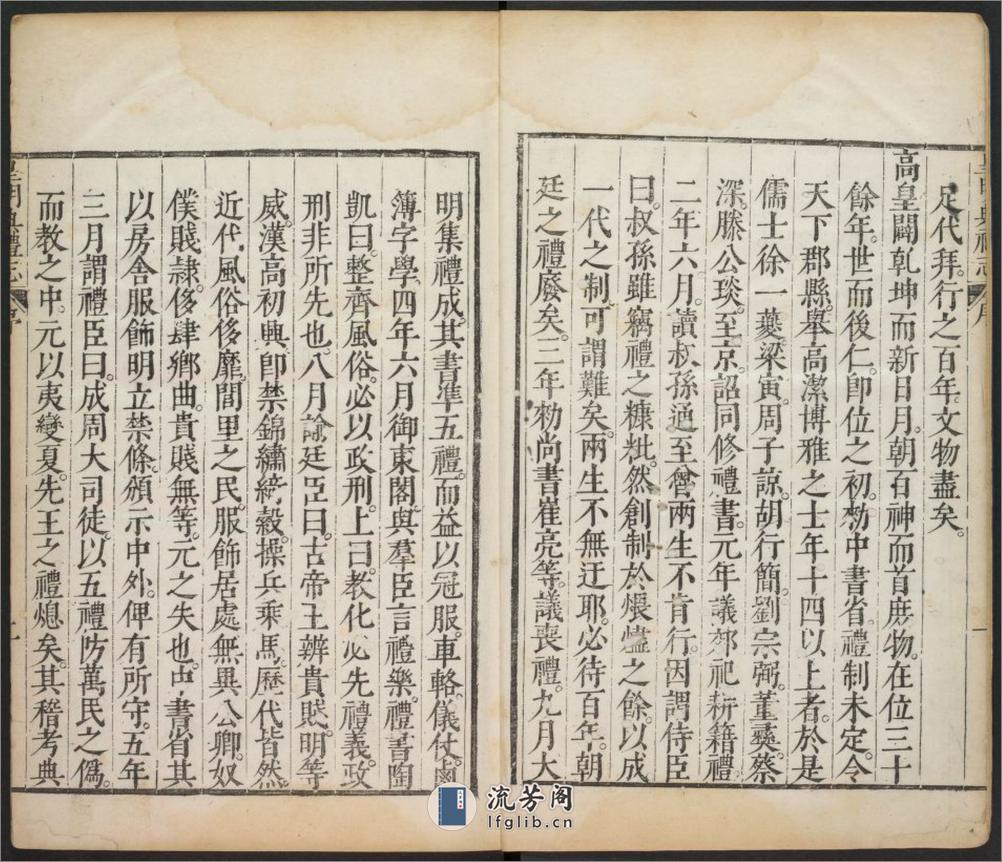 足代拜。行之百年。文物盡矣。
高皇闢乾坤而新日月。朝百神而首庶物。在位三十
餘年。世而後仁。卽位之初。勑中書省。禮制未定。令
天下郡縣。舉高潔博雅之士年十四以上者。於是
儒士徐一夔。梁寅。周子諒。胡行簡。劉宗弼。董彝。蔡
深。滕公琰。至京。詔同修禮書。元年議郊祀耕籍禮
二年六月。讀叔孫通至魯兩生不肯行。因謂侍臣
曰。叔孫雖竊禮之糠粃。然創制於煨燼之餘。以成
一代之制。可謂難矣。兩生不無迂耶。必待百年。朝
廷之禮廢矣。三年勑尚書崔亮等。議喪禮。九月大
皇明典禮志
序
一
明集禮成。其書準五禮。而益以冠服。車輅。儀仗。鹵
簿。字學。四年六月。御東閣。與羣臣言禮樂。禮書陶
凱曰。整齊風俗。必以政刑。上曰。教化必先禮義。政
刑非所先也。八月諭廷臣曰。古帝王辨貴賎。明等
威。漢高初興。卽禁錦繡綺縠。操兵乘馬。歷代皆然。
近代風俗侈靡。閭里之民。服飾居處無異公卿。奴
僕賎隷。侈肆鄉曲。貴賎無等。元之失也。中書省其
以房舍服飾明立禁條。頒示中外。俾有所守。五年
三月謂禮臣曰。成周大司徒。以五禮防萬民之僞。
而教之中。元以夷變夏。先王之禮熄矣。其稽考典
皇明典禮志
序
二
流芳阁
lfglib.cn